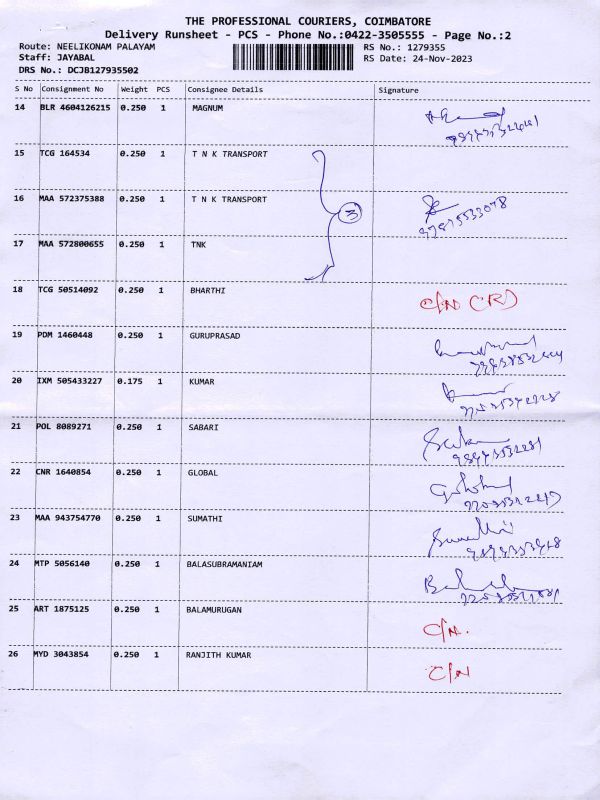 THE PROFESSIONAL COURIERS, COIMBATORE
Delivery Runsheet - PCS - Phone No.:0422-3505555 - Page No.:2
Route: NEELIKONAM PALAYAM RS No.: 1279355
Staff: JAYABAL RS Date: 24-Nov-2023
DRS No.: DCJB127935502
S No Consignment No Weight PCS Consignee Details Signature
14 BLR 4604126215 0.250 1 MAGNUM
15 TCG 164534 0.250 1 T N K TRANSPORT
16 MAA 572375388 0.250 1 T N K TRANSPORT
3
17 MAA 572800655 0.250 1 TNK
18 TCG 50514092 0.250 1 BHARTHI C/N (R)
19 PDM 1460448 0.250 1 GURUPRASAD
20 IXM 505433227 0.175 1 KUMAR
21 POL 8089271 0.250 1 SABARI
22 CNR 1640854 0.250 1 GLOBAL
23 MAA 943754770 0.250 1 SUMATHI
24 MTP 5056140 0.250 1 BALASUBRAMANIAM
25 ART 1875125 0.250 1 BALAMURUGAN C/N.
26 MYD 3043854 0.250 1 RANJITH KUMAR C/N